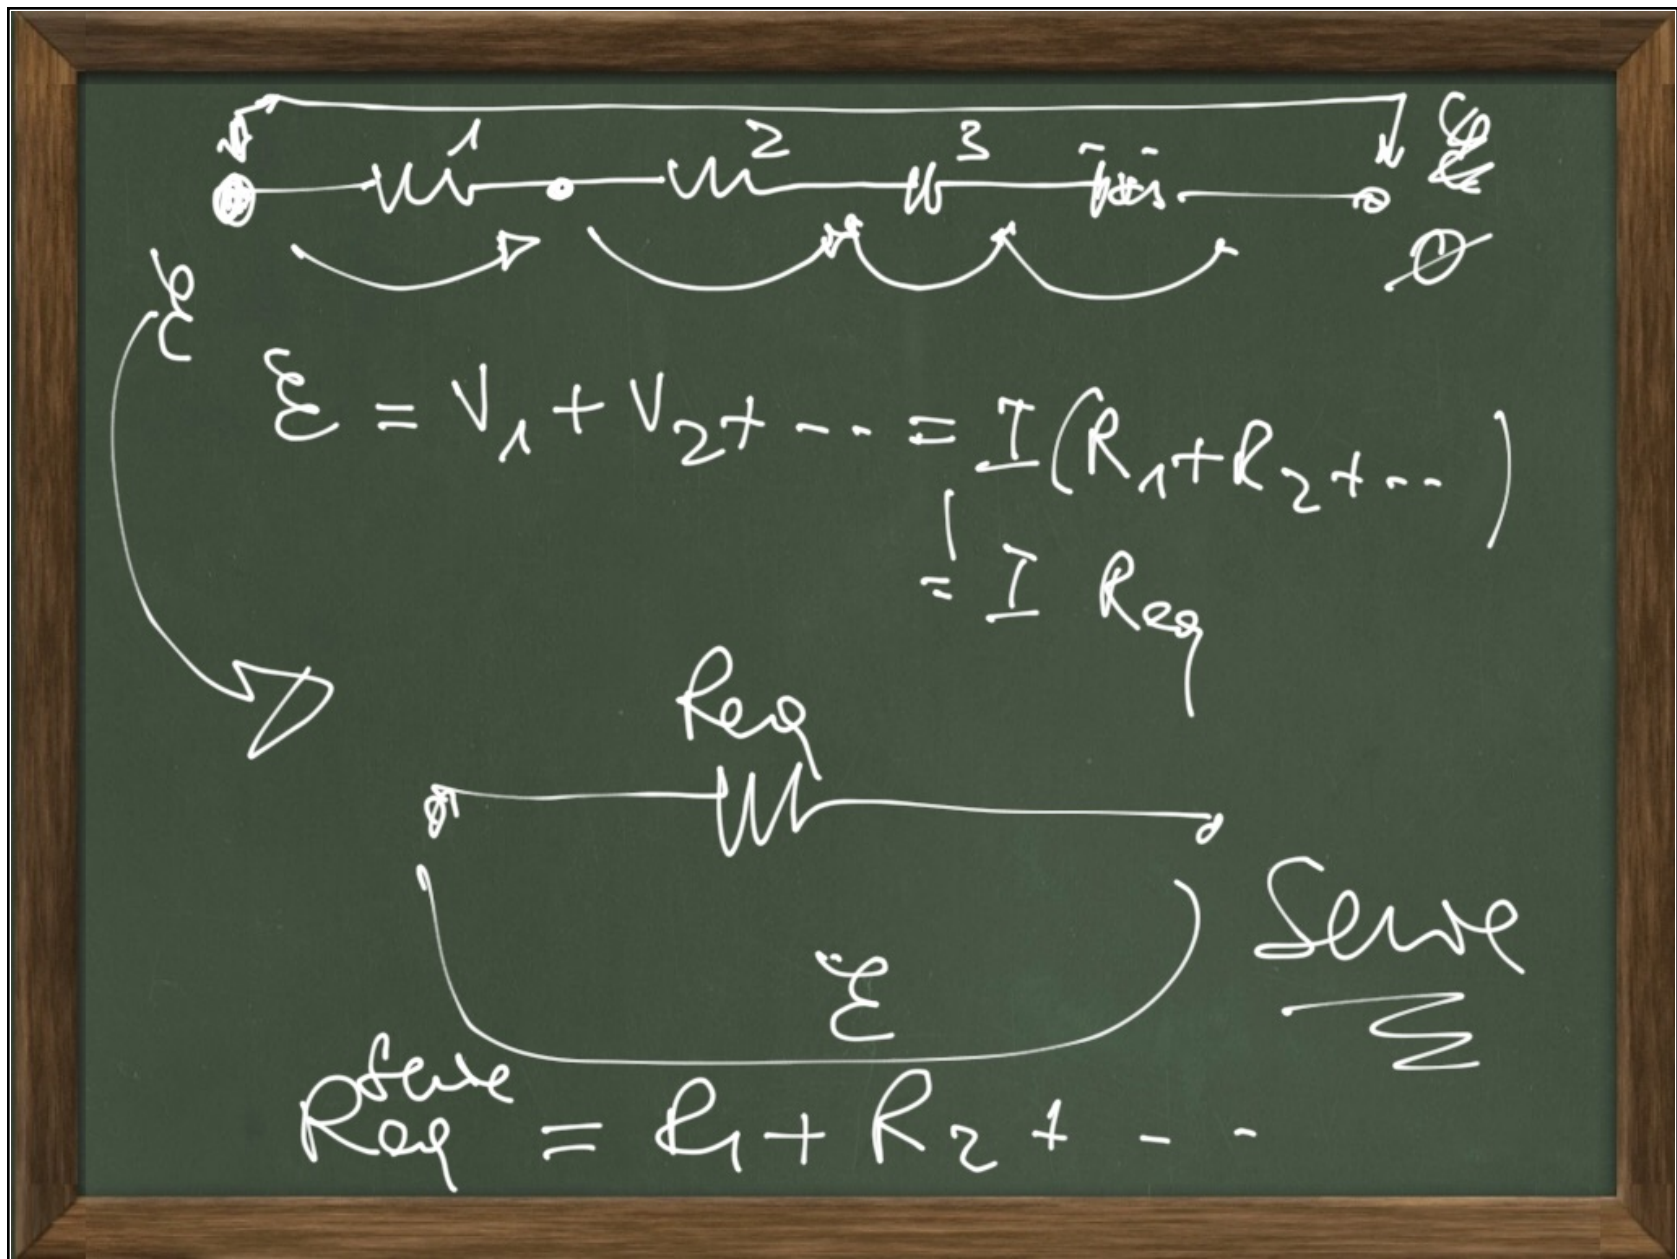 1 2 3
ℰ
ℰ = V₁ + V₂ + ... = I(R₁ + R₂ + ...)
= I Req
Req
Serie
ℰ
Req^Serie = R₁ + R₂ + - -